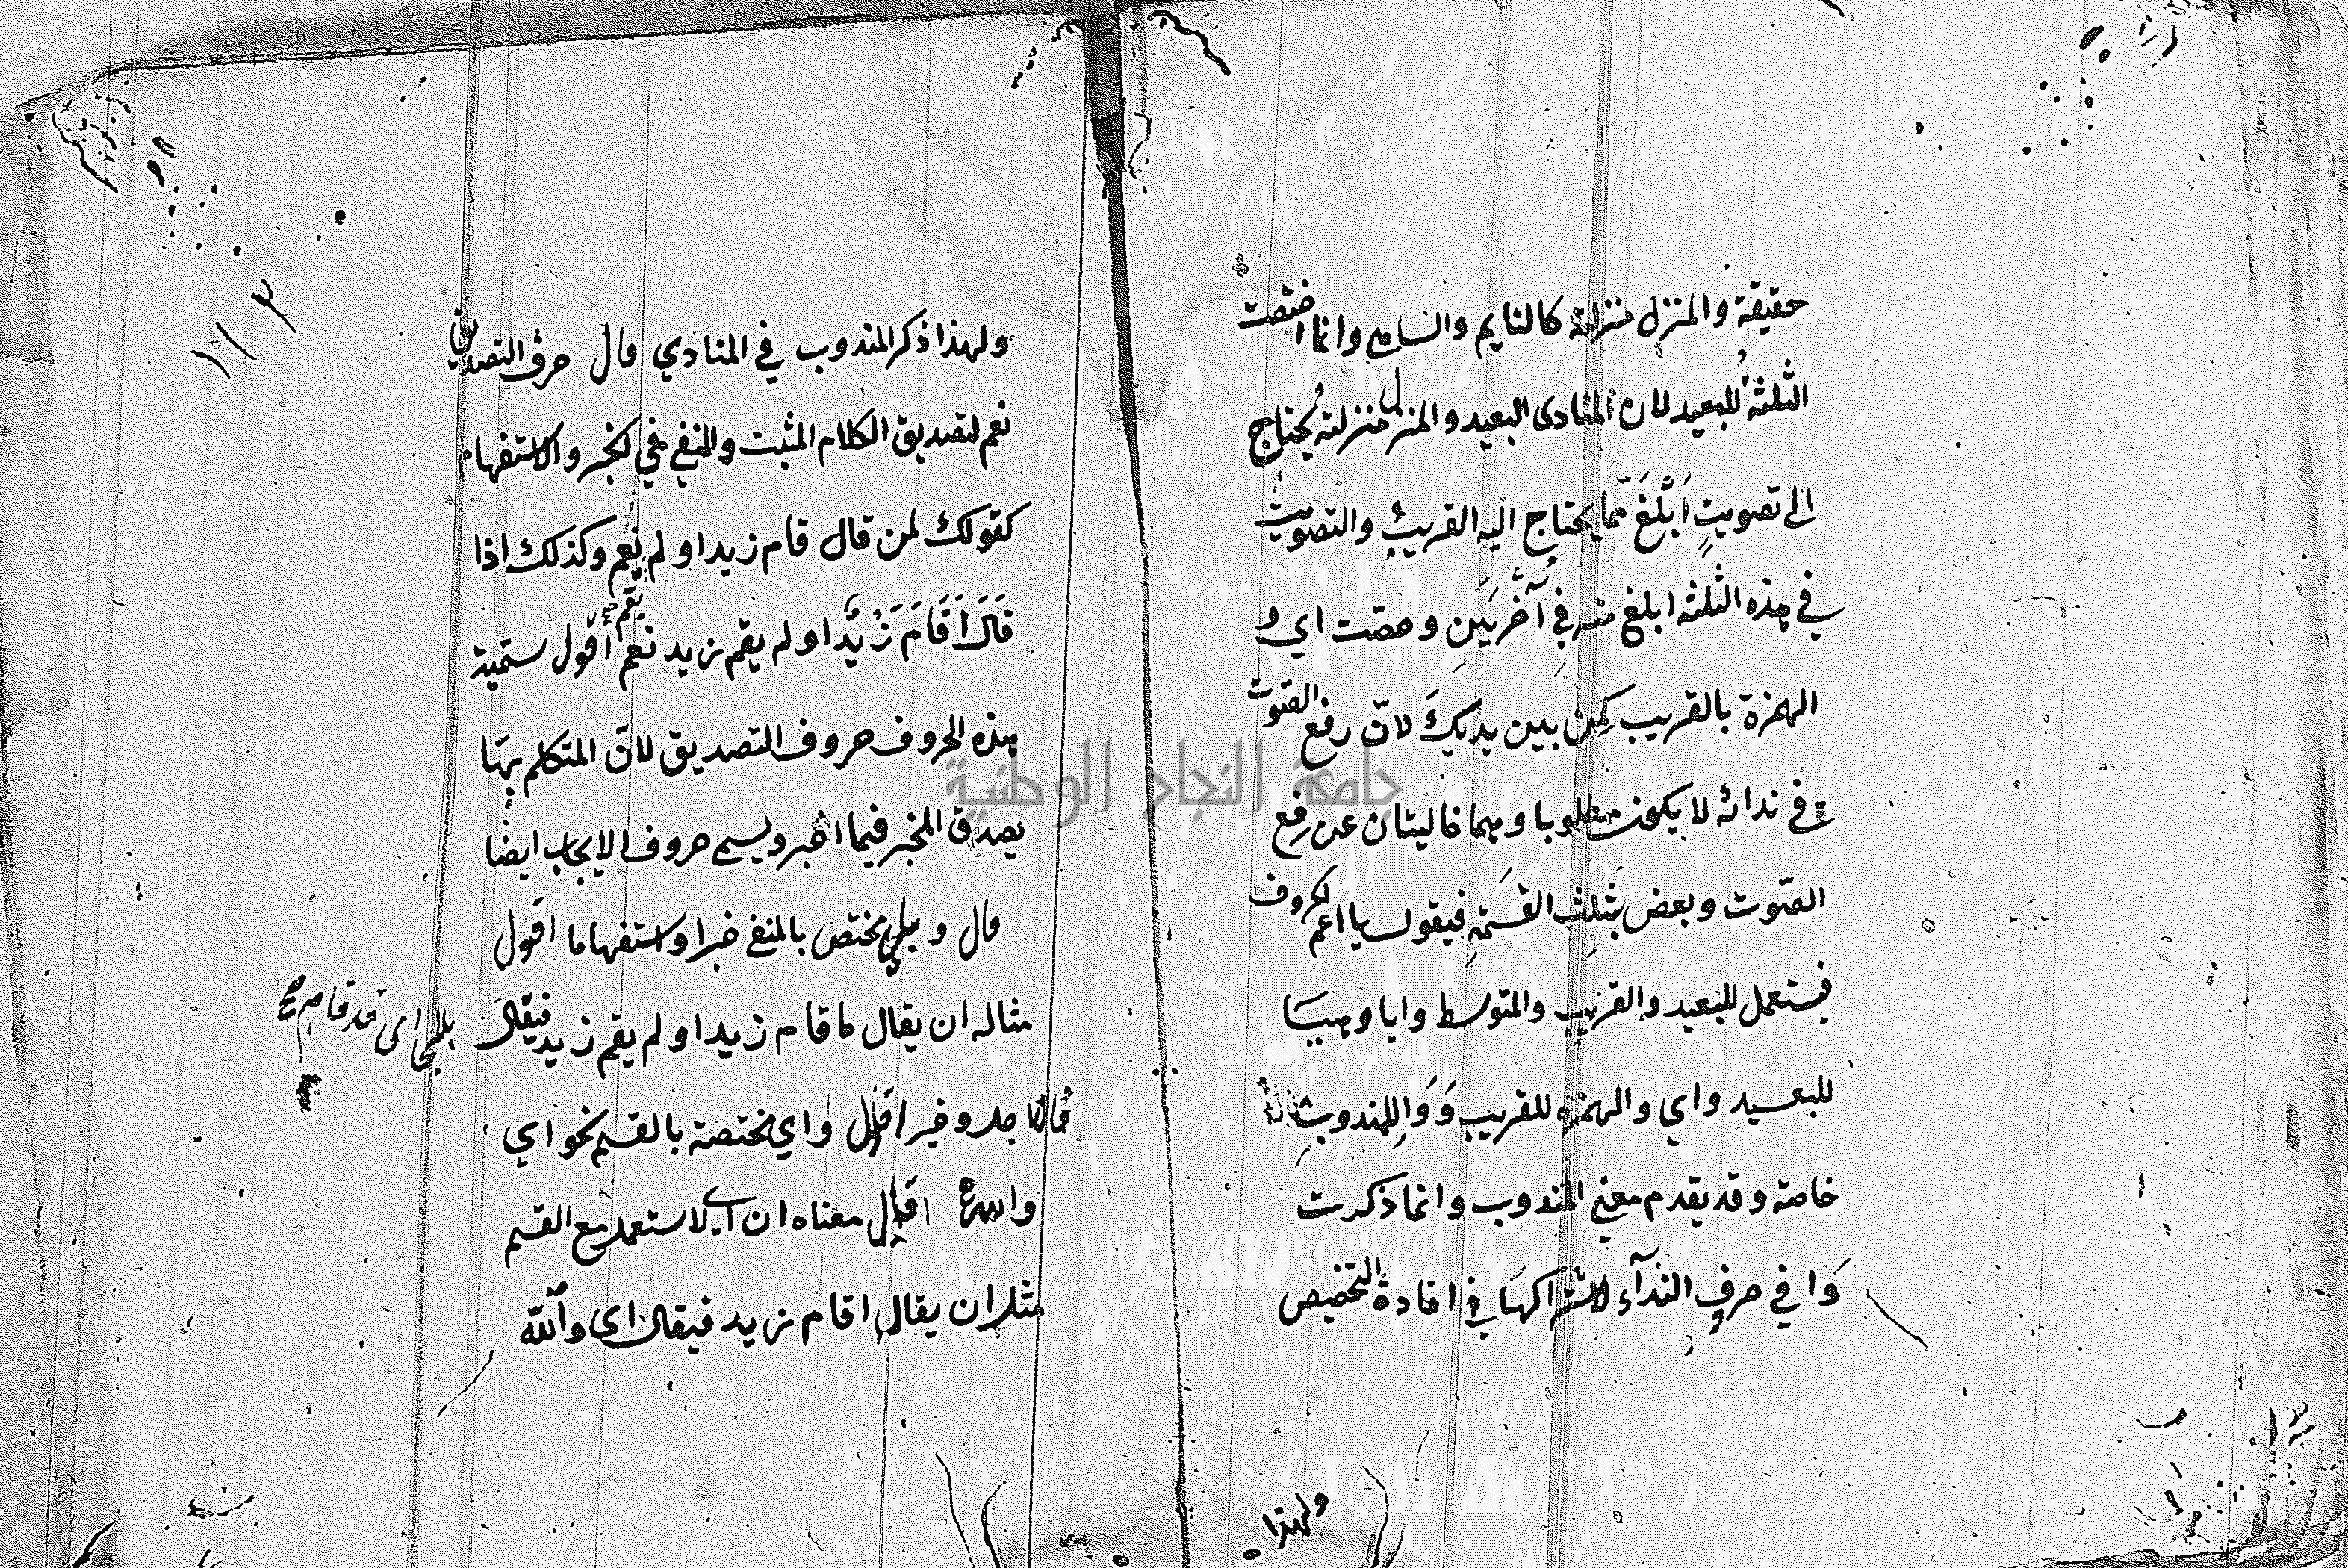 حقيقة والمنزل منزلته كالنايم والساهي وانما اختصت
الثلثة للبعيد لان المنادى البعيد والمنزل منزلته يحتاج
الى تصويت ابلغ مما يحتاج اليه القريب والتصويت
في هذه الثلثة ابلغ منه في آخريين وخصت اي و
الهمزة بالقريب كمن بين يديك لان رفع الصوت
في ندائه لا يكون مطلوبا وهما خاليتان عن رفع
الصوت وبعض يثلث القسمة فيقول يا اعم الحروف
فيستعمل للبعيد والقريب والمتوسط وايا وهيا
للبعيد واي والهمزة للقريب ووا للمندوب
خاصة وقد يقدم معنى المندوب وانما ذكرت
وا في حرف النداء لاشتراكهما في افادة التخصيص
ولهذا
ولهذا ذكر المندوب في المنادي قال حرف التصديق
نعم لتصديق الكلام المثبت والمنفي في الخبر والاستفهام
كقولك لمن قال قام زيد او لم يقم نعم وكذلك اذا
قال اقام زيد او لم يقم زيد نعم اقول ستمية
هذه الحروف حروف التصديق لان المتكلم بها
يصدق المخبر فيما اخبر ويسمى حروف الايجاب ايضا
قال وبلى مختص بالمنفي خبرا واستفهاما اقول
مثاله ان يقال ما قام زيد او لم يقم زيد فيقال
بلى اي قد قام صح
اجل وخير اقول واي مختصة بالقسم نحو اي
والله اقول معناه ان اي لا ستعمل مع القسم
مثل ان يقال اقام زيد فيقال اي والله
جامعة النجاح الوطنية